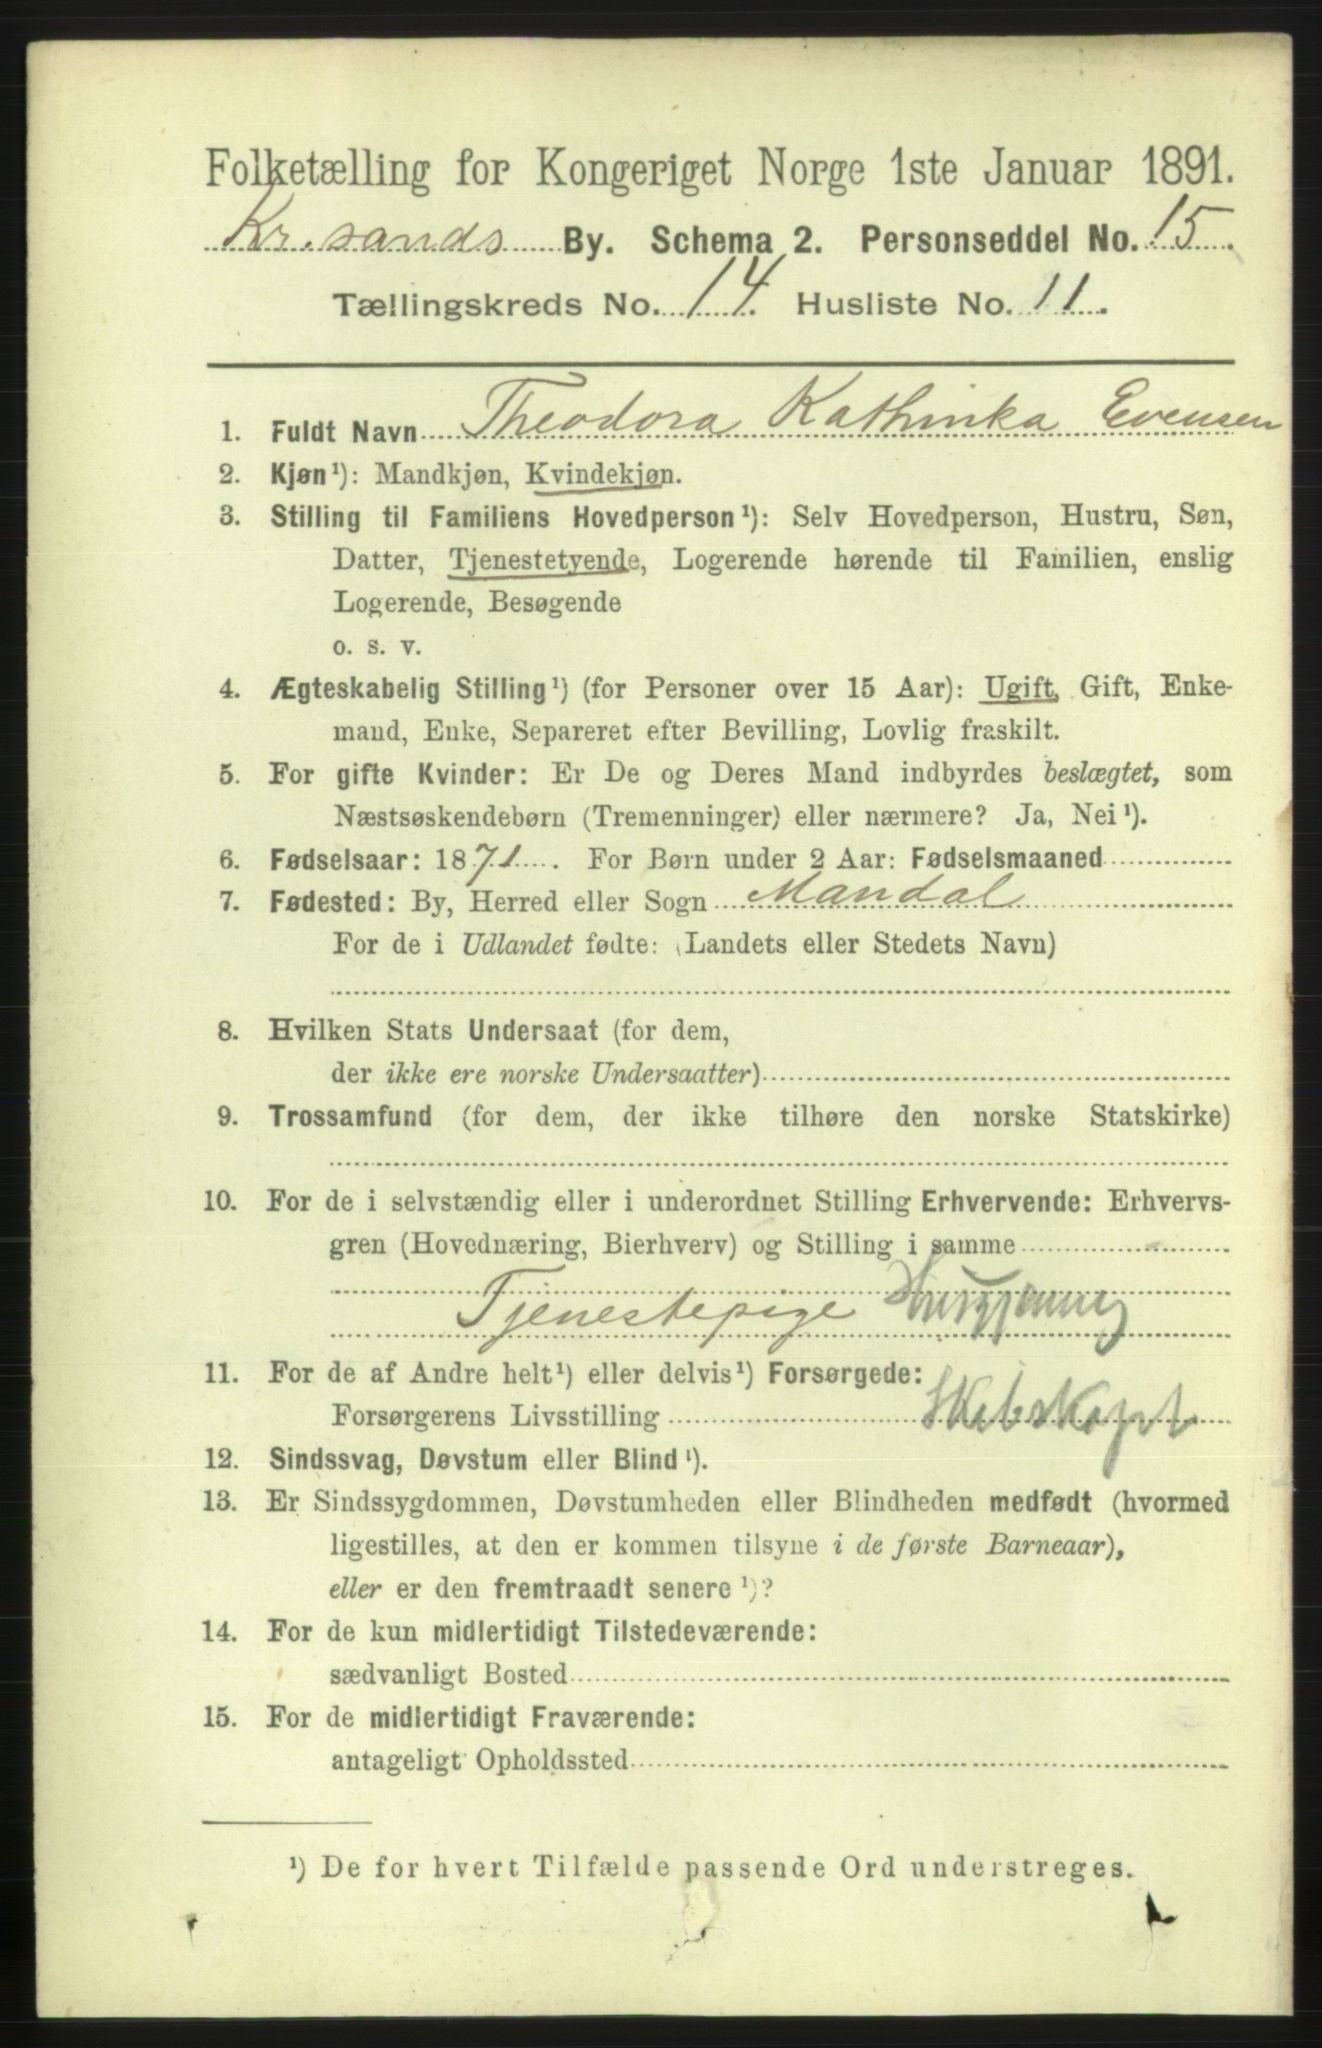 Folketælling for Kongeriget Norge 1ste Januar 1891.
Kr.sands By. Schema 2. Personseddel No. 15.
Tællingskreds No. 14. Husliste No. 11.
1. Fuldt Navn Theodora Kathinka Evensen
2. Kjøn¹): Mandkjøn, Kvindekjøn.
3. Stilling til Familiens Hovedperson¹): Selv Hovedperson, Hustru, Søn,
Datter, Tjenestetyende, Logerende hørende til Familien, enslig
Logerende, Besøgende
o. s. v.
4. Ægteskabelig Stilling¹) (for Personer over 15 Aar): Ugift, Gift, Enke-
mand, Enke, Separeret efter Bevilling, Lovlig fraskilt.
5. For gifte Kvinder: Er De og Deres Mand indbyrdes beslægtet, som
Næstsøskendebørn (Tremenninger) eller nærmere? Ja, Nei¹).
6. Fødselsaar: 1871. For Børn under 2 Aar: Fødselsmaaned
7. Fødested: By, Herred eller Sogn Mandal
For de i Udlandet fødte: (Landets eller Stedets Navn)
8. Hvilken Stats Undersaat (for dem,
der ikke ere norske Undersaatter)
9. Trossamfund (for dem, der ikke tilhøre den norske Statskirke)
10. For de i selvstændig eller i underordnet Stilling Erhvervende: Erhvervs-
gren (Hovednæring, Bierhverv) og Stilling i samme
Tjenestepige
11. For de af Andre helt¹) eller delvis¹) Forsørgede:
Forsørgerens Livsstilling Skibskapt
12. Sindssvag, Døvstum eller Blind¹).
13. Er Sindssygdommen, Døvstumheden eller Blindheden medfødt (hvormed
ligestilles, at den er kommen tilsyne i de første Barneaar),
eller er den fremtraadt senere¹)?
14. For de kun midlertidigt Tilstedeværende:
sædvanligt Bosted
15. For de midlertidigt Fraværende:
antageligt Opholdssted
¹) De for hvert Tilfælde passende Ord understreges.